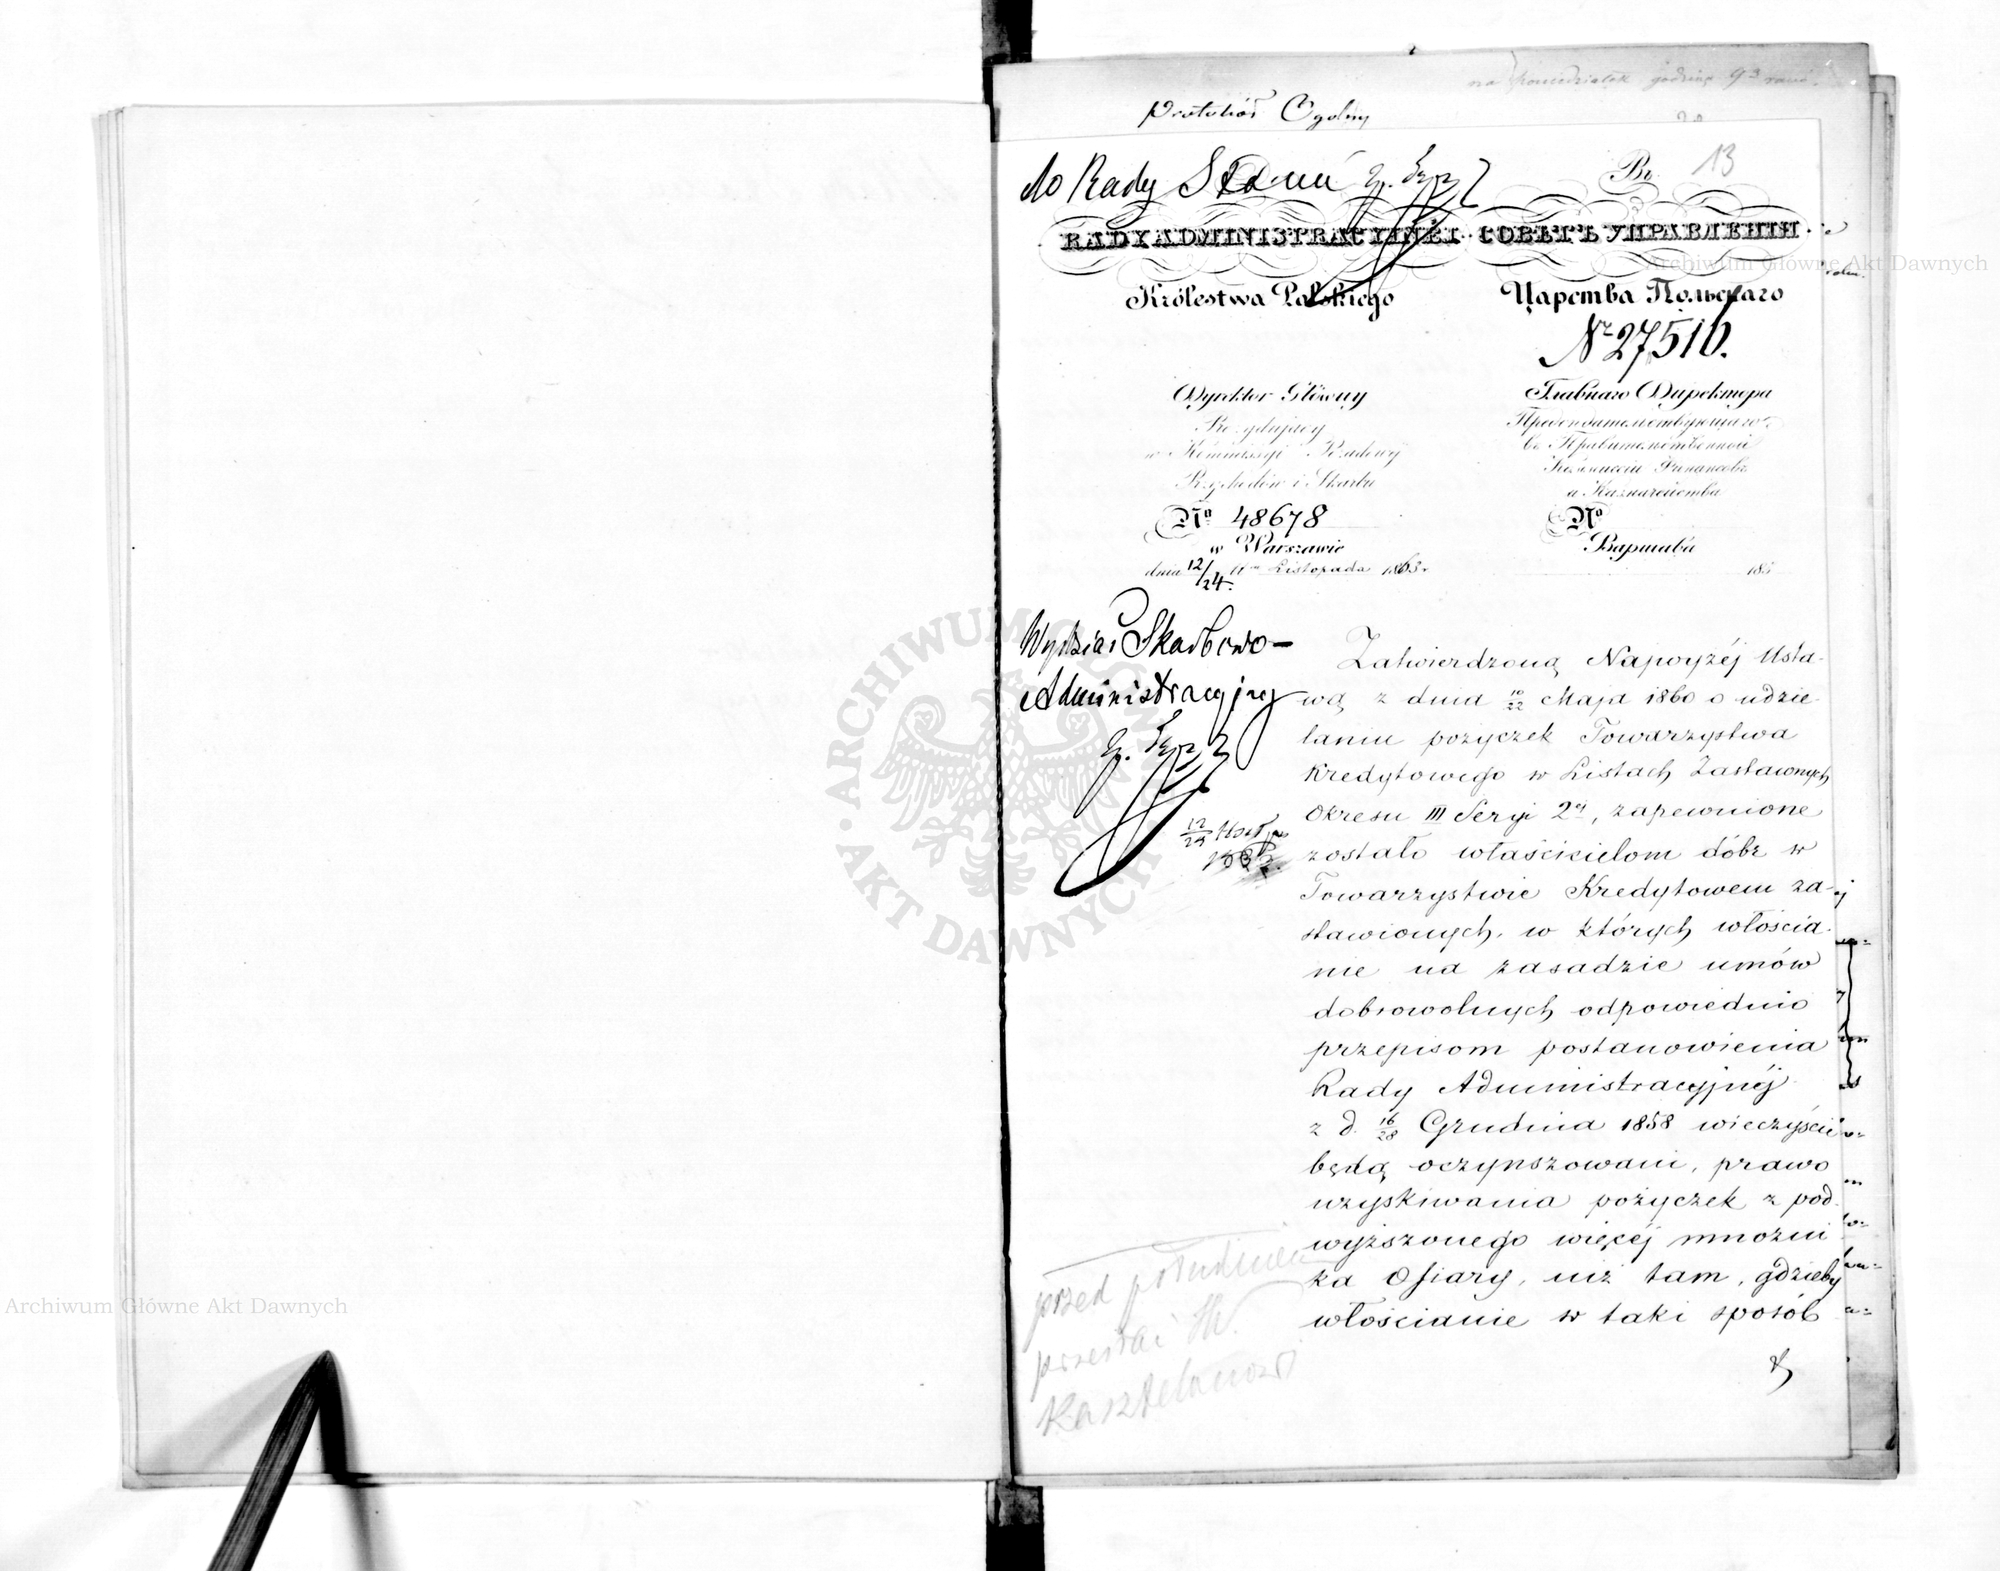 na poniedziałek godzinę 9 rano.
Protokół Ogólny
do Rady Stanu
Въ 13
RADY ADMINISTRACYJNÉJ СОВѢТЪ УПРАВЛЕНІЯ
Królestwa Polskiego Царства Польскаго
Nr 27516.
Dyrektor Główny
Prezydujący
w Kommissyi Rządowéj
Przychodów i Skarbu
No 48678
w Warszawie
dnia 12/24 Listopada 1863 r.
Главнаго Директора
Предсѣдательствующаго
въ Правительственной
Коммиссіи Финансовъ
и Казначейства
No
Варшава
185
Wydział Skarbowo-
Administracyjny
przed południem
przesłać
Kasztelanowi
Zatwierdzoną Najwyżéj Usta-
wą z dnia 10/22 Maja 1860 o udzie-
laniu pożyczek Towarzystwa
Kredytowego w Listach Zastawnych
Okresu III Seryi 2éj, zapewnione
zostało właścicielom dóbr w
Towarzystwie Kredytowem za-
stawionych, w których włościa-
nie na zasadzie umów
dobrowolnych odpowiednio
przepisom postanowienia
Rady Administracyjnéj
z d. 16/28 Grudnia 1858 wieczyście
będą oczynszowani, prawo
uzyskiwania pożyczek z pod-
wyższonego więcéj mnożni
ka Ofiary, niż tam, gdzieby
włościanie w taki sposób
Archiwum Główne Akt Dawnych
Archiwum Główne Akt Dawnych
ARCHIWUM GŁÓWNE AKT DAWNYCH